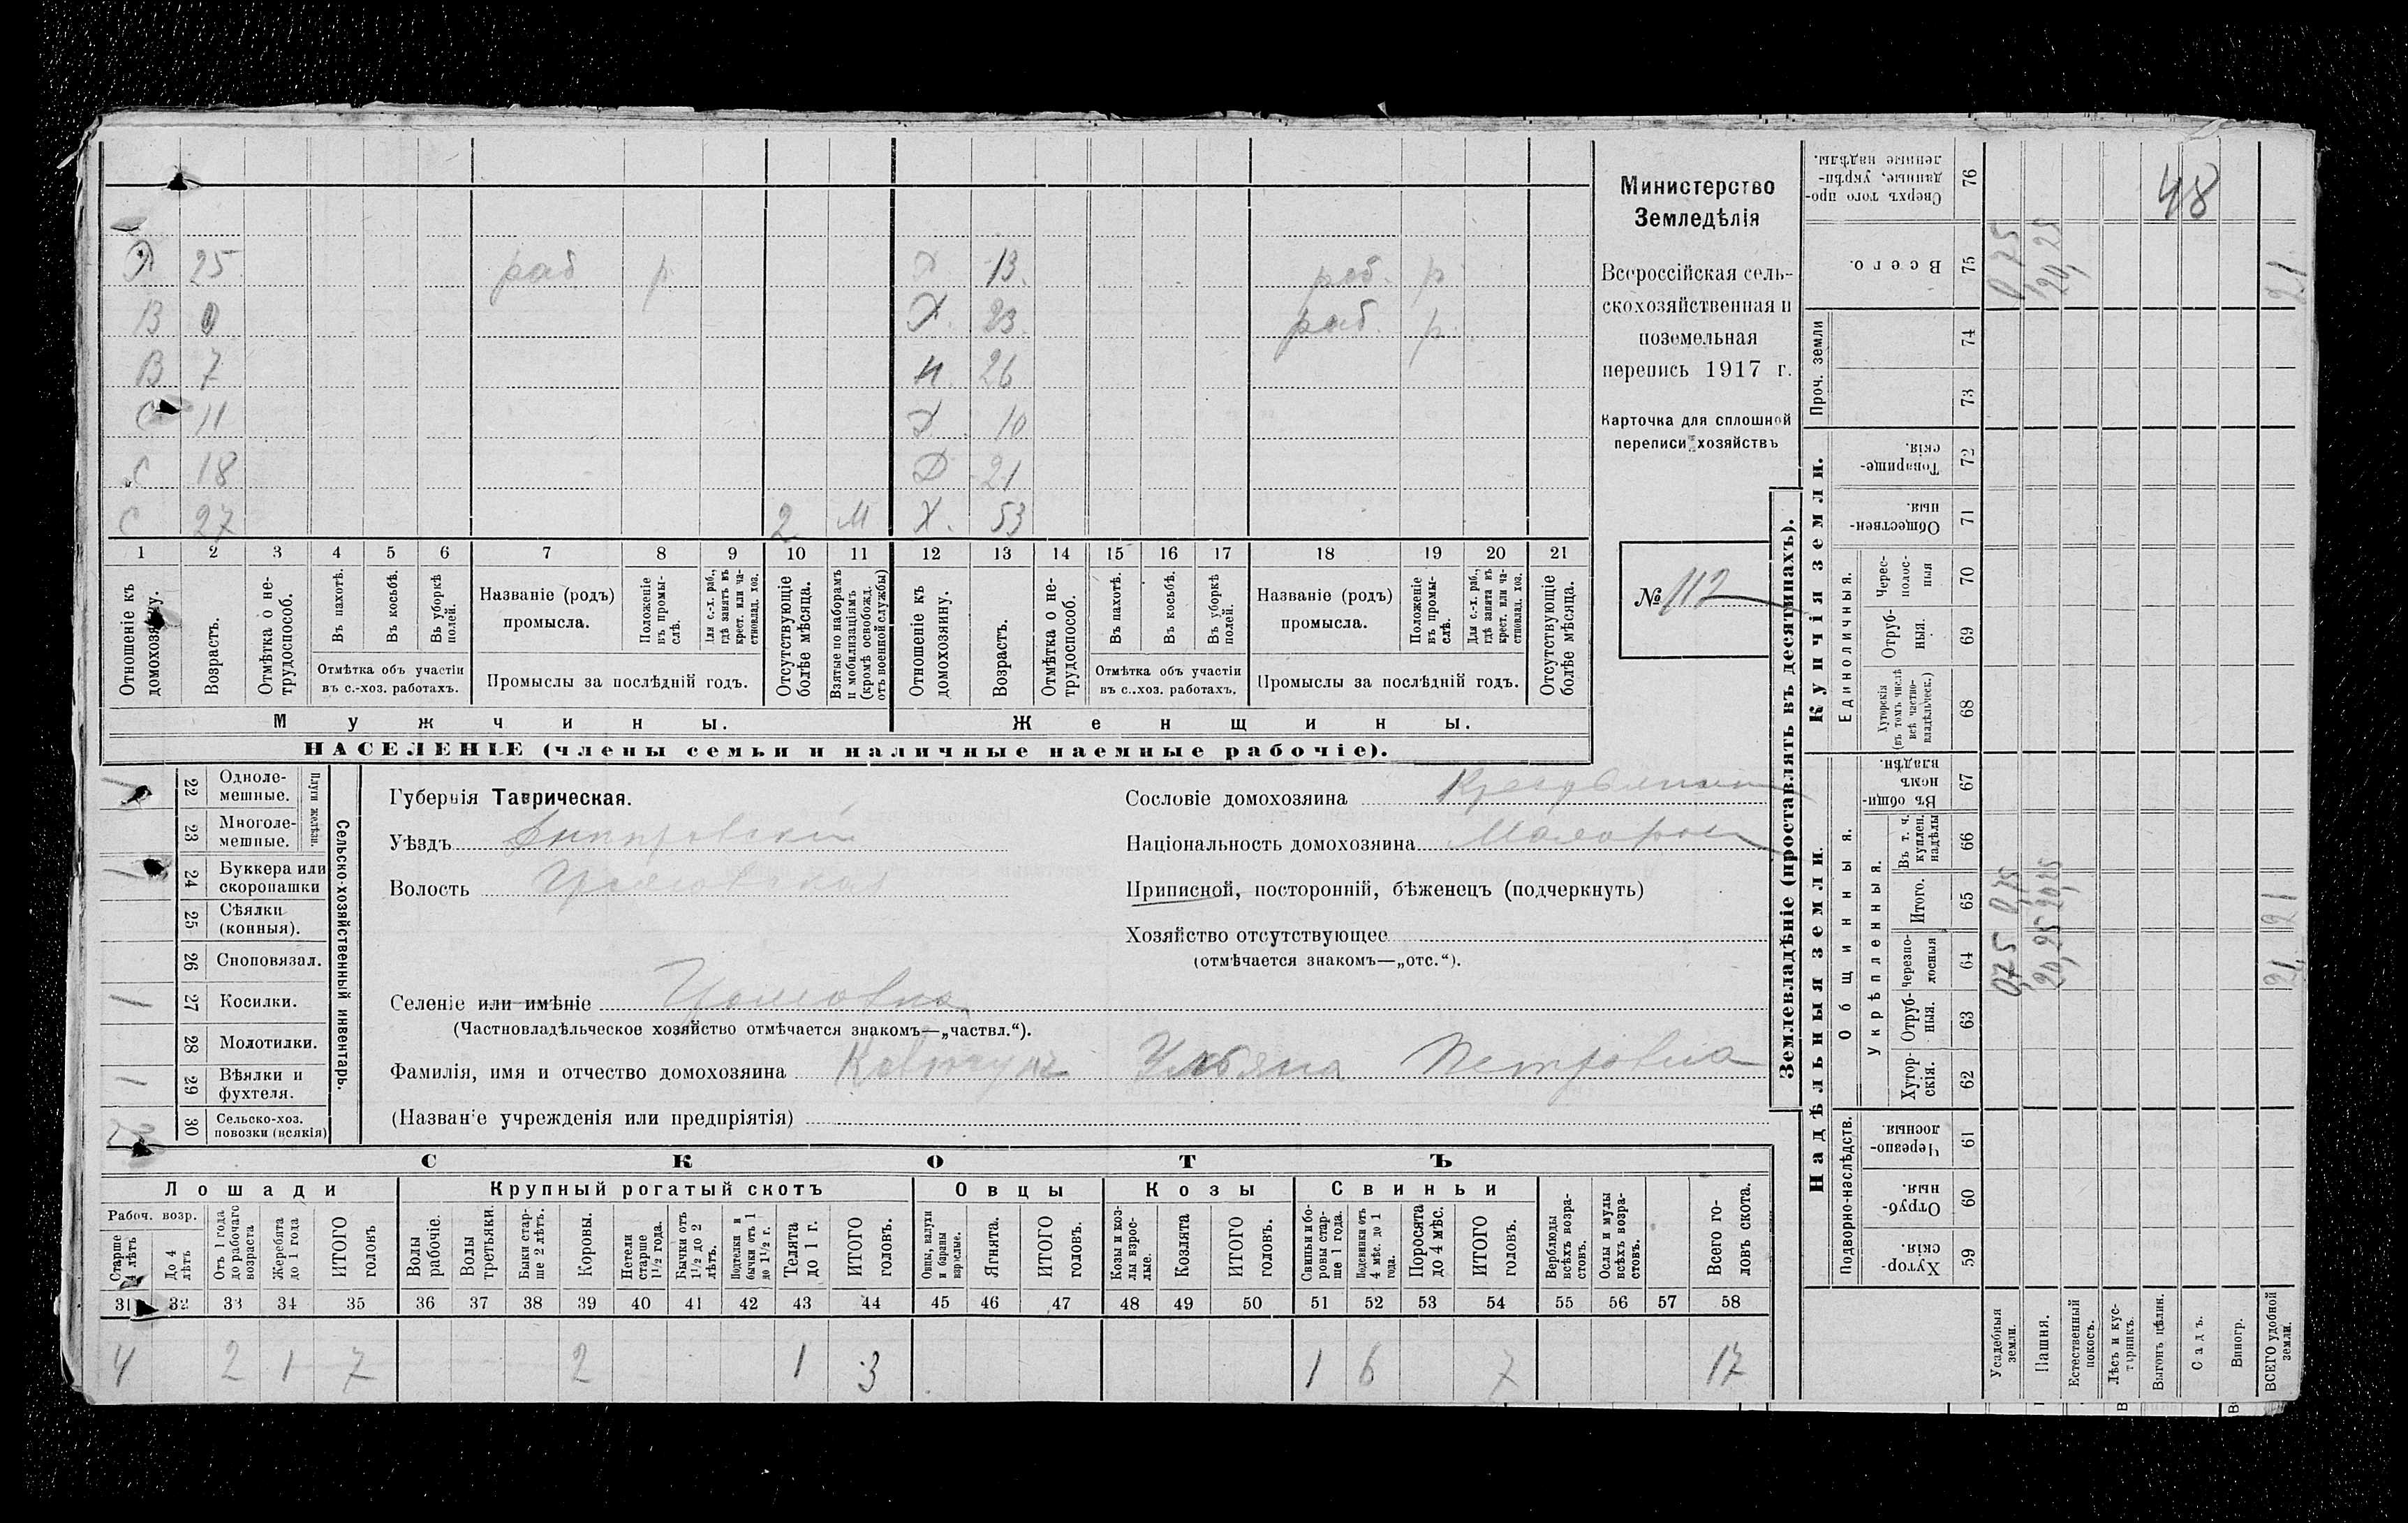 Министерство
Земледѣлія
Всероссійская сель-
скохозяйственная и
поземельная
перепись 1917 г.
Карточка для сплошной
переписи хозяйствъ
№ 112
25 раб р 13. раб. р
В 0 Х. 23. раб. р.
В 7 26
С 11 10
С 18 21
С 27 2 М Х. 53
1 2 3 4 5 6 7 8 9 10 11 12 13 14 15 16 17 18 19 20 21
Отношеніе къ домохозяину.
Возрастъ.
Отмѣтка о не-трудоспособ.
Въ пахотѣ.
Въ косьбѣ.
Въ уборкѣ полей.
Отмѣтка объ участіи
въ с.-хоз. работахъ.
Названіе (родъ)
промысла.
Положеніе въ промы-слѣ.
Для с.-х. раб., гдѣ занятъ въ крест. или ча-стновлад. хоз.
Промыслы за послѣдній годъ.
Отсутствующіе болѣе мѣсяца.
Взятые по наборамъ и мобилизаціямъ (кромѣ освобожд. отъ военной службы)
Отношеніе къ домохозяину.
Возрастъ.
Отмѣтка о не-трудоспособ.
Въ пахотѣ.
Въ косьбѣ.
Въ уборкѣ полей.
Отмѣтка объ участіи
въ с..хоз. работахъ.
Названіе (родъ)
промысла.
Положеніе въ промы-слѣ.
Для с.-х. раб., гдѣ занята въ крест. или ча-стновлад. хоз.
Промыслы за послѣдній годъ.
Отсутствующіе болѣе мѣсяца.
Мужчины. Женщины.
НАСЕЛЕНІЕ (члены семьи и наличные наемные рабочіе).
Сельско-хозяйственный инвентарь.
Плуги желѣзн.
1 22 Одноле-мешные.
23 Многоле-мешные.
1 24 Буккера или скоропашки
25 Сѣялки (конныя).
26 Сноповязал.
1 27 Косилки.
28 Молотилки.
1 29 Вѣялки и фухтеля.
30 Сельско-хоз. повозки (всякія)
Губернія Таврическая.
Уѣздъ Днипровскій
Волость
Селеніе или имѣніе
(Частновладѣльческое хозяйство отмѣчается знакомъ—„частвл.“).
Фамилія, имя и отчество домохозяина Ульяна Петровна
(Названіе учрежденія или предпріятія)
Сословіе домохозяина
Національность домохозяина Малорос
Приписной, посторонній, бѣженецъ (подчеркнуть)
Хозяйство отсутствующее
(отмѣчается знакомъ—„отс.“).
СКОТЪ
Лошади Крупный рогатый скотъ Овцы Козы Свиньи
Рабоч. возр.
Старше 4 лѣтъ
До 4 лѣтъ
Отъ 1 года до рабочаго возраста
Жеребята до 1 года
ИТОГО головъ
Волы рабочіе.
Волы третьяки.
Быки стар-ше 2 лѣтъ.
Коровы.
Нетели старше 1½ года.
Бычки отъ 1½ до 2 лѣтъ.
Подтелки и бычки отъ 1 до 1½ г.
Телята до 1 г.
ИТОГО головъ.
Овцы, валухи и бараны взрослые.
Ягнята.
ИТОГО головъ.
Козы и коз-лы взрос-лые.
Козлята
ИТОГО головъ.
Свиньи и бо-ровы стар-ше 1 года.
Подсвинки отъ 4 мѣс. до 1 года.
Поросята до 4 мѣс.
ИТОГО головъ.
Верблюды всѣхъ возра-стовъ.
Ослы и мулы всѣхъ возра-стовъ.
Всего го-ловъ скота.
31 32 33 34 35 36 37 38 39 40 41 42 43 44 45 46 47 48 49 50 51 52 53 54 55 56 57 58
4 2 1 7 2 1 3 1 6 7 17
Землевладѣніе (проставлять въ десятинахъ).
Надѣльныя земли. Купчія земли. Проч. земли
Подворно-наслѣдств. Общинныя. Укрѣпленныя. Единоличныя.
Сверхъ того про-данные, укрѣп-ленные надѣлы. 76 48
Всего. 75 0,75 20,25 21
74
73
Товарище-скія. 72
Обществен-ныя. 71
Черес-полос-ныя 70
Отруб-ныя. 69
Хуторскія (въ томъ числѣ всѣ частно-владѣльческ.) 68
Въ общи-номъ владѣн. 67
Въ т. ч. куплен. надѣлы 66
Итого. 65 0,75 20,25 21
Черезпо-лосныя 64 0,75 20,25 21
Отруб-ныя. 63
Хутор-скія. 62
Черезпо-лосныя. 61
Отруб-ныя. 60
Хутор-скія. 59
Усадебныя земли.
Пашня.
Естественный покосъ.
Лѣсъ и кус-тарникъ.
Выгонъ цѣлин.
Садъ.
Виногр.
ВСЕГО удобной земли.